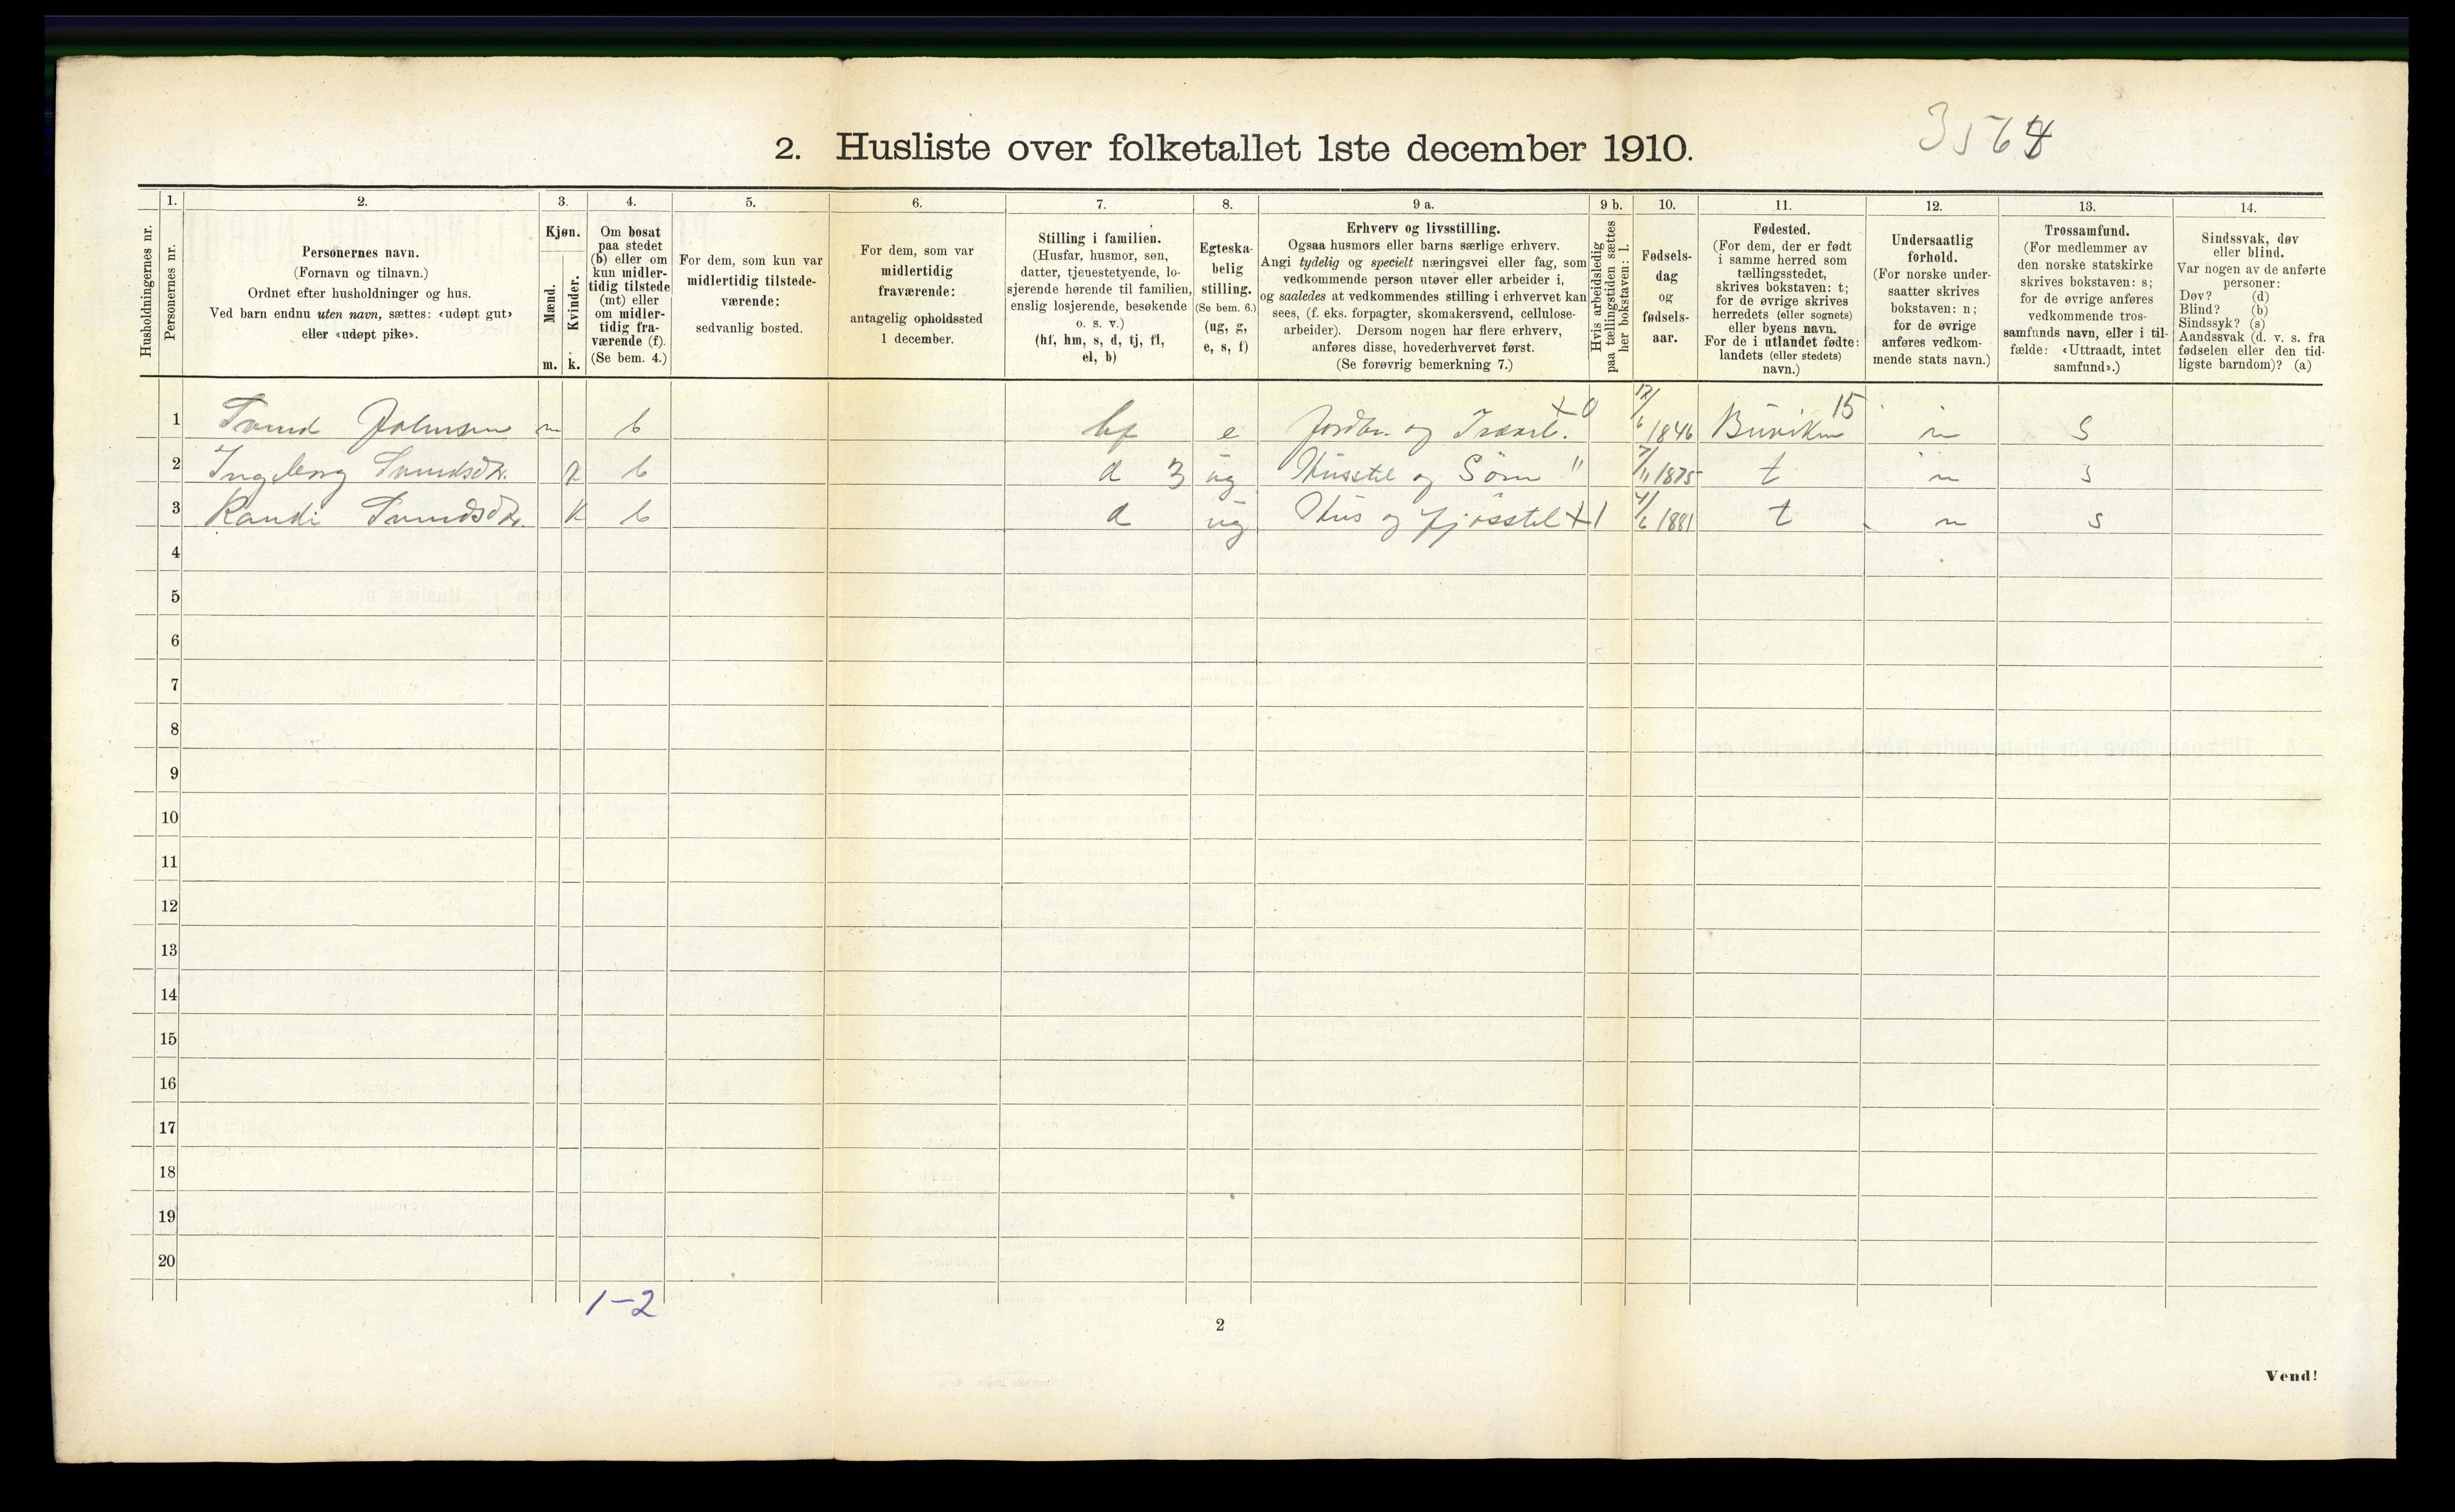 2. Husliste over folketallet 1ste december 1910.
Husholdningernes nr.
1.
Personernes nr.
2.
Personernes navn.
(Fornavn og tilnavn.)
Ordnet efter husholdninger og hus.
Ved barn endnu uten navn, sættes: «udøpt gut»
eller «udøpt pike».
3.
Kjøn.
Mænd.
Kvinder.
m. k.
4.
Om bosat
paa stedet
(b) eller om
kun midler-
tidig tilstede
(mt) eller
om midler-
tidig fra-
værende (f).
(Se bem. 4.)
5.
For dem, som kun var
midlertidig tilstede-
værende:
sedvanlig bosted.
6.
For dem, som var
midlertidig
fraværende:
antagelig opholdssted
1 december.
7.
Stilling i familien.
(Husfar, husmor, søn,
datter, tjenestetyende, lo-
sjerende hørende til familien,
enslig losjerende, besøkende
o. s. v.)
(hf, hm, s, d, tj, fl,
el, b)
8.
Egteska-
belig
stilling.
(Se bem. 6.)
(ug, g,
e, s, f)
9 a.
Erhverv og livsstilling.
Ogsaa husmors eller barns særlige erhverv.
Angi tydelig og specielt næringsvei eller fag, som
vedkommende person utøver eller arbeider i,
og saaledes at vedkommendes stilling i erhvervet kan
sees, (f. eks. forpagter, skomakersvend, cellulose-
arbeider). Dersom nogen har flere erhverv,
anføres disse, hovederhvervet først.
(Se forøvrig bemerkning 7.)
9 b.
Hvis arbeidsledig
paa tællingstiden sættes
her bokstaven: l.
10.
Fødsels-
dag
og
fødsels-
aar.
11.
Fødested.
(For dem, der er født
i samme herred som
tællingsstedet,
skrives bokstaven: t;
for de øvrige skrives
herredets (eller sognets)
eller byens navn.
For de i utlandet fødte:
landets (eller stedets)
navn.)
12.
Undersaatlig
forhold.
(For norske under-
saatter skrives
bokstaven: n;
for de øvrige
anføres vedkom-
mende stats navn.)
13.
Trossamfund.
(For medlemmer av
den norske statskirke
skrives bokstaven: s;
for de øvrige anføres
vedkommende tros-
samfunds navn, eller i til-
fælde: «Uttraadt, intet
samfund».)
14.
Sindssvak, døv
eller blind.
Var nogen av de anførte
personer:
Døv? (d)
Blind? (b)
Sindssyk? (s)
Aandssvak (d. v. s. fra
fødselen eller den tid-
ligste barndom)? (a)
1 Johnsen m b hf e Jordbr. og x0 1846 15 n s
2 Ingeborg k b d 3 ug Husstel og Søm " 7/11 1875 t n s
3 Randi k b d ug Hus og fjösstel x1 4/6 1881 t n s
4
5
6
7
8
9
10
11
12
13
14
15
16
17
18
19
20
1-2
2
Vend!